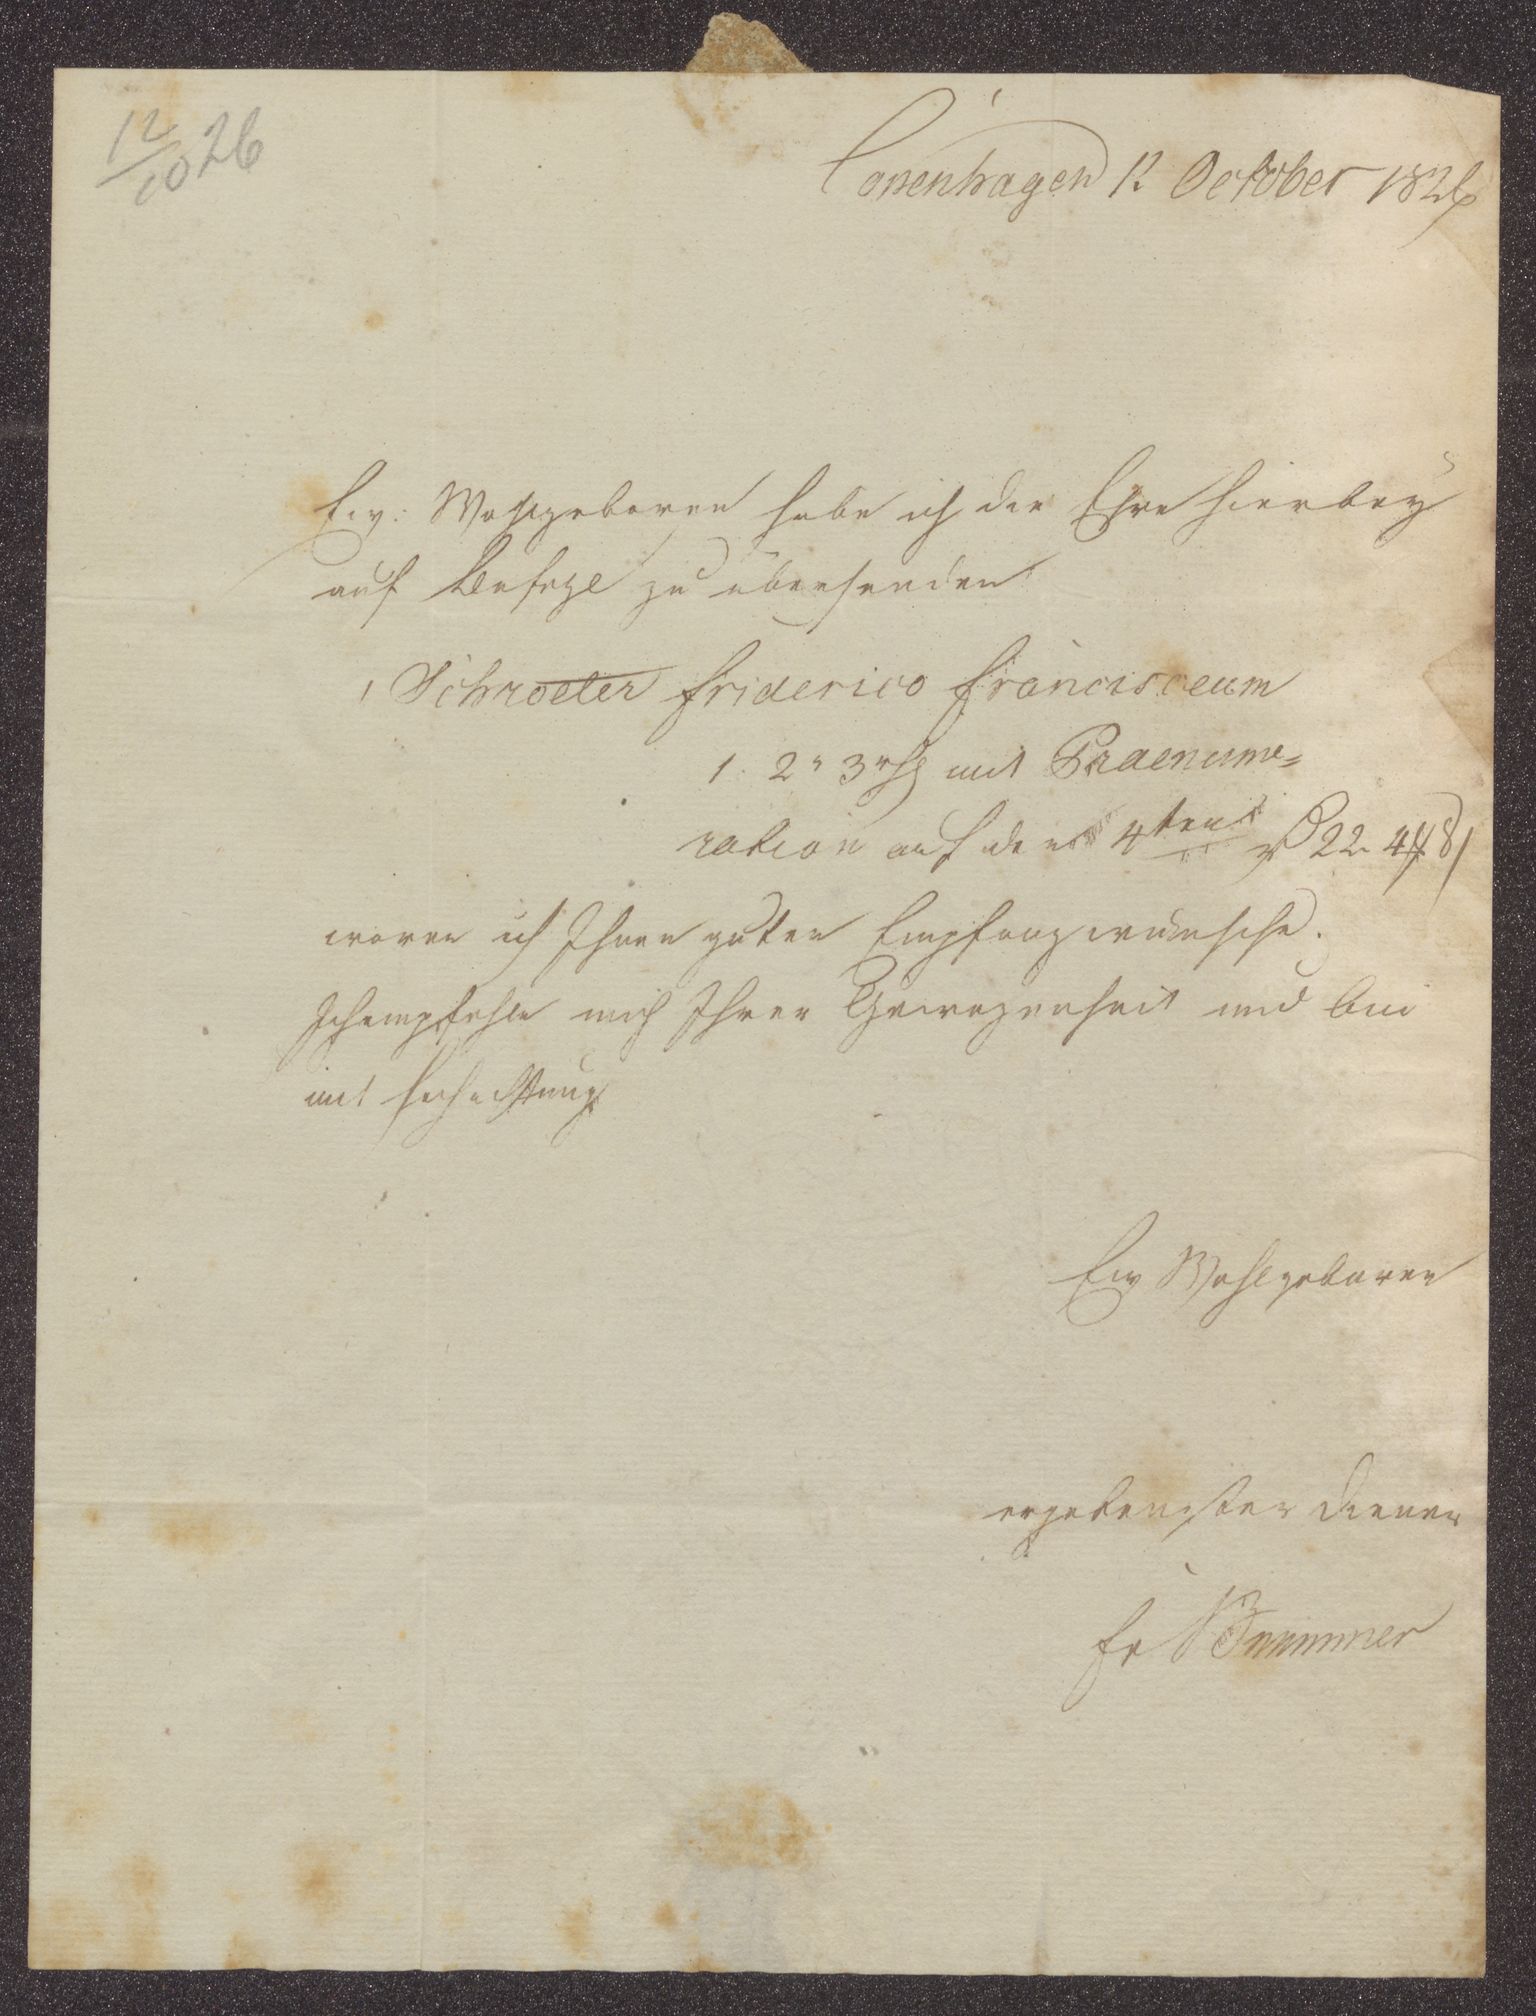 12/10 26
Copenhagen 12 October 1826
Ew: Wohlgeboren habe ich die Ehre hierbey
auf Befehl zu übersenden
1 Schroeter Friderico Francisceum
1. 2r 3r Hf mit Praenume=
ration auf den 4ten 22 4 ß
woran ich Ihnen guten Empfang wünsche.
Ich empfehle mich Ihrer Gewogenheit und bin
mit Hochachtung
Ew Wohlgeboren
ergebenster Diener
Fr Brummer